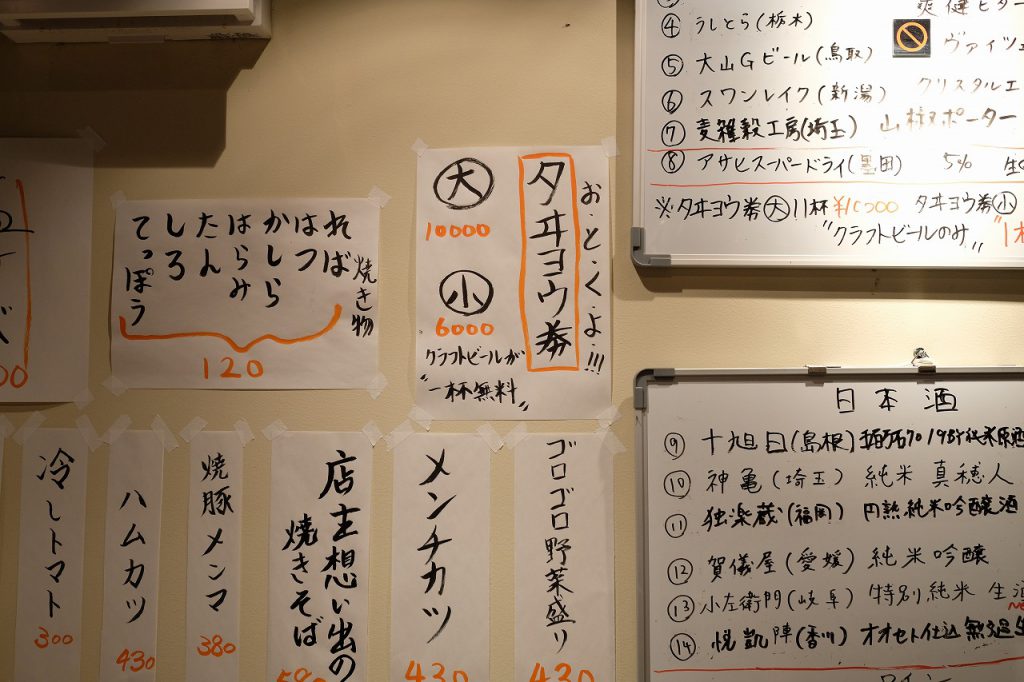 ④ うしとら(栃木)
⑤ 大山Gビール(鳥取)
ヴァイツェ
⑥ スワンレイク(新潟) クリスタルエ
⑦ 麦雑穀工房(埼玉) 山椒ポーター
⑧ アサヒスーパードライ(墨田) 5% 生
※タヰヨウ券㊅11杯 ¥10000 タヰヨウ券㊋
"クラフトビールのみ"
お・と・く・よ・!!!
タヰヨウ券
大
10000
小
6000
クラフトビールが
"一杯無料"
焼き物
ればー
はつ
かしら
はらみ
たん
しろ
てっぽう
120
日本酒
⑨ 十旭日(島根)
⑩ 神亀(埼玉) 純米 真穂人
⑪ 独楽蔵(福岡) 円熟純米吟醸酒
⑫ 賀儀屋(愛媛) 純米吟醸
⑬ 小左衛門(岐阜) 特別純米 生酒
⑭ 悦凱陣(香川) オオセト仕込 無濾過生
ワイン
ゴロゴロ野菜盛り
430
メンチカツ
430
店主想い出の
焼きそば
焼豚メンマ
380
ハムカツ
430
冷しトマト
300